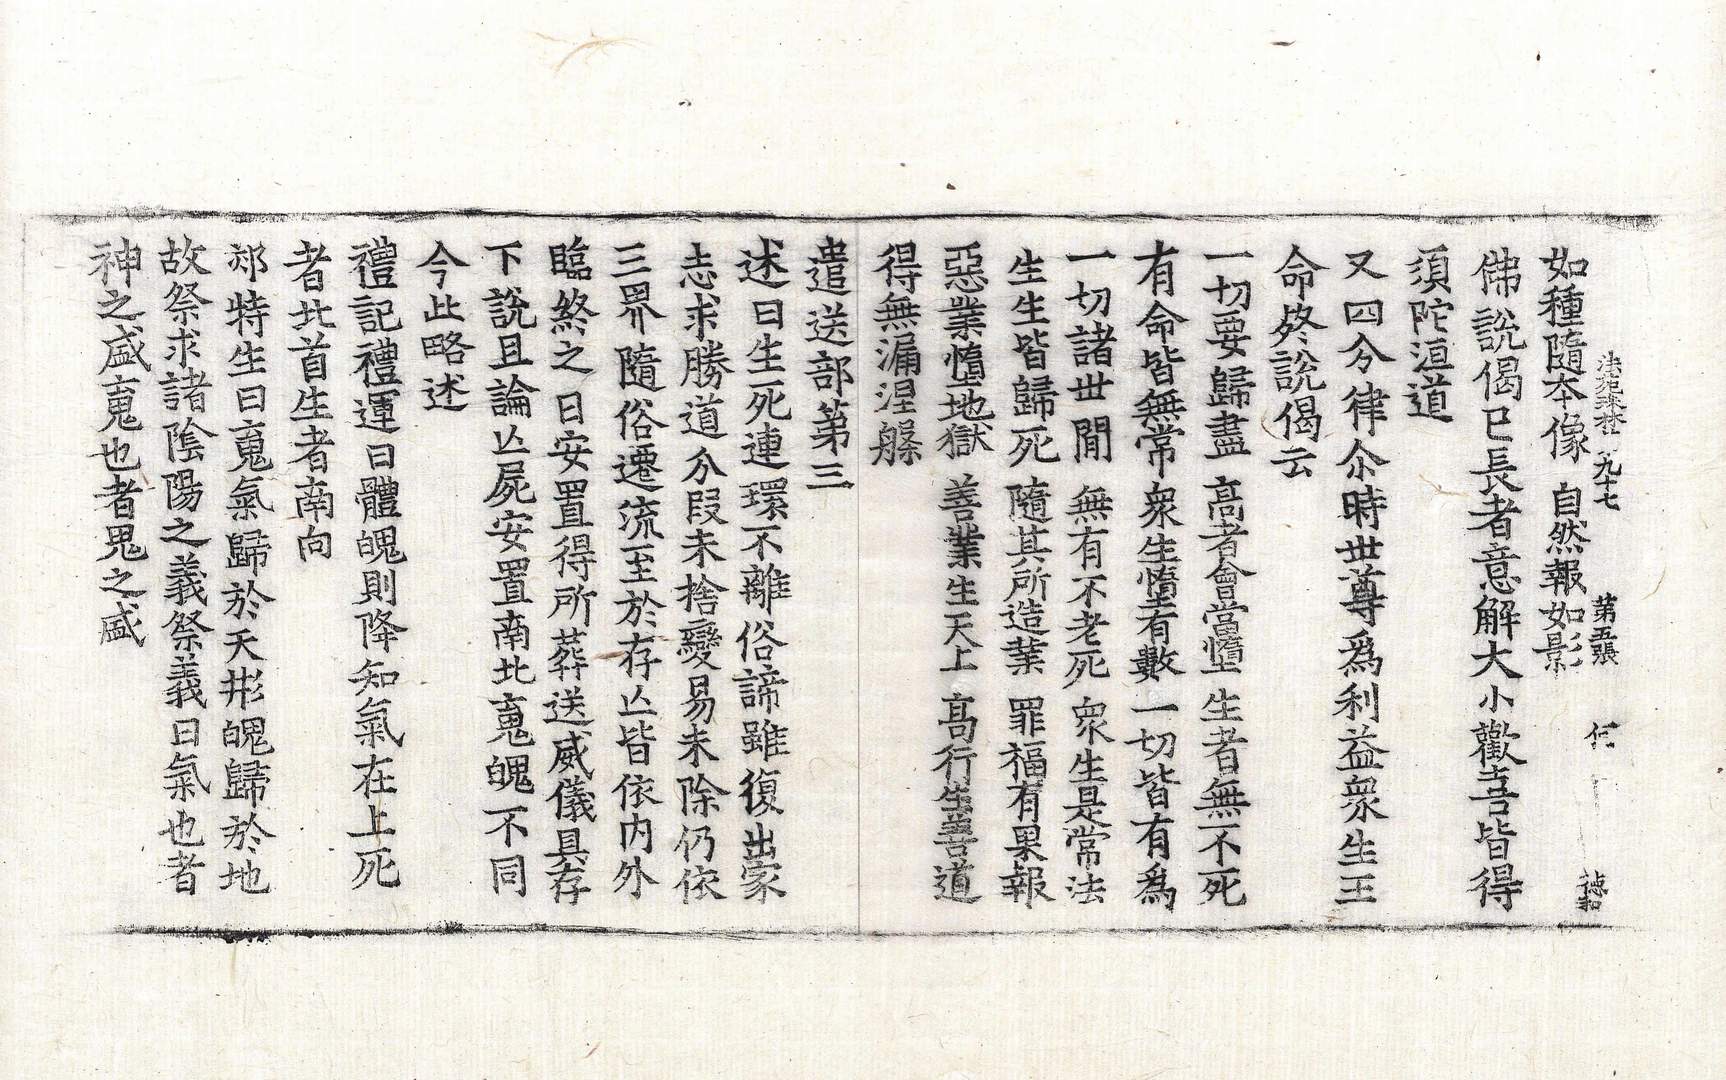 法苑珠林 九十七 第五張 何 德和
如種隨本像 自然報如影
佛說偈已長者意解大小歡喜皆得
須陀洹道
又四分律尒時世尊爲利益衆生王
命終說偈云
一切要歸盡 高者會當墮 生者無不死
有命皆無常 衆生墮有數 一切皆有爲
一切諸世間 無有不老死 衆生是常法
生生皆歸死 隨其所造業 罪福有果報
惡業墮地獄 善業生天上 高行生善道
得無漏涅槃
遣送部第三
述曰生死連環不離俗諦雖復出家
志求勝道分段未捨變易未除仍依
三界隨俗遷流至於存亾皆依内外
臨終之日安置得所葬送威儀具存
下說且論亾屍安置南北䰟魄不同
今此略述
禮記禮運曰體魄則降知氣在上死
者北首生者南向
郊特生曰䰟氣歸於天形魄歸於地
故祭求諸陰陽之義祭義曰氣也者
神之盛䰟也者鬼之盛